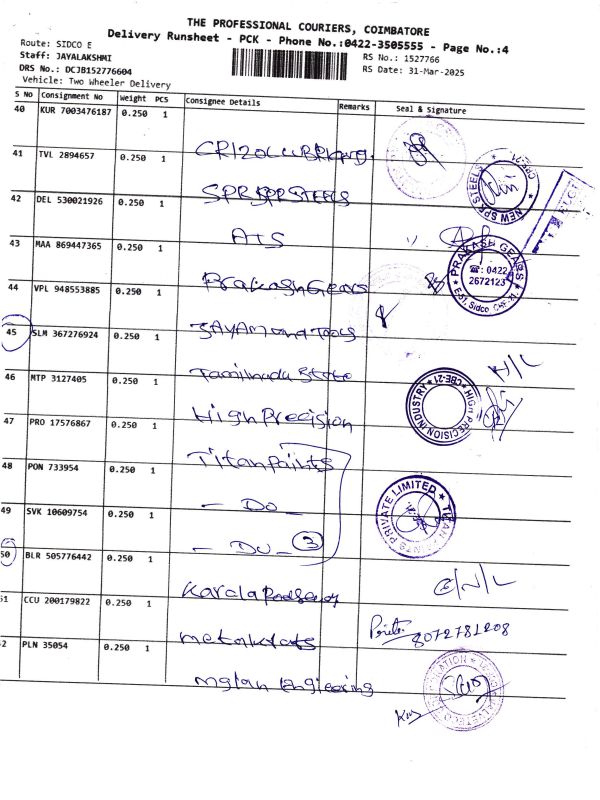 THE PROFESSIONAL COURIERS, COIMBATORE
Delivery Runsheet - PCK - Phone No.:0422-3505555 - Page No.:4
Route: SIDCO E
Staff: JAYALAKSHMI
DRS No.: DCJB152776604
Vehicle: Two Wheeler Delivery
RS No.: 1527766
RS Date: 31-Mar-2025
S No Consignment No Weight PCS Consignee Details Remarks Seal & Signature
40 KUR 7003476187 0.250 1
41 TVL 2894657 0.250 1 SPR SPR STEELS
NEW SPR STEELS CBE-21
42 DEL 530021926 0.250 1 ATS
43 MAA 869447365 0.250 1 Prakash Gears
PRAKASH GEARS
☎: 0422
2672123
E-51, Sidco CBE-21
44 VPL 948553885 0.250 1 Tools
45 SLM 367276924 0.250 1 Tamilnadu State H/L
46 MTP 3127405 0.250 1 High Precision
HIGH PRECISION INDUSTRY CBE-21
47 PRO 17576867 0.250 1 Titan paints
48 PON 733954 0.250 1 - Do -
PRIVATE LIMITED
49 SVK 10609754 0.250 1 - Do - 3
50 BLR 505776442 0.250 1
51 CCU 200179822 0.250 1 metalkrafts
8072781208
52 PLN 35054 0.250 1